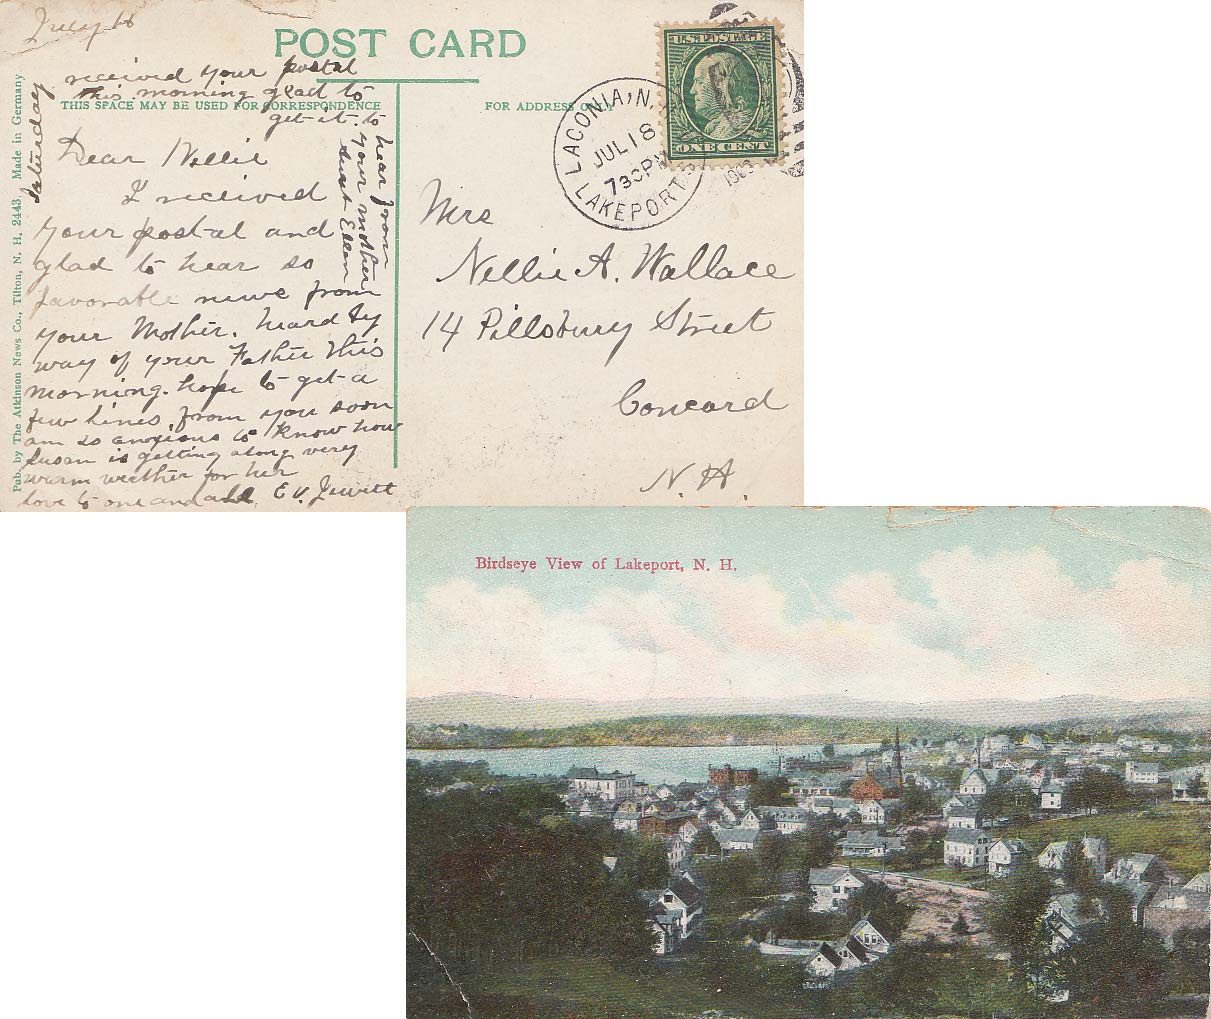 July 18
POST CARD
received your postal
this morning glad to
get it. to
hear from
your mother
Aunt Ellen
Saturday
THIS SPACE MAY BE USED FOR CORRESPONDENCE
FOR ADDRESS ONLY
Dear Nellie
I received
your postal and
glad to hear so
favorable news from
your Mother. heard by
way of your Father this
morning. hope to get a
few lines from you soon
am so anxious to know how
Susan is getting along very
warm weather for her
love to one and all E V. Jewett
Pub. by The Atkinson News Co., Tilton, N. H. 2443 Made in Germany
LACONIA, N.
JUL 18
730 PM
LAKEPORT
U.S. POSTAGE
ONE CENT
Mrs
Nellie A. Wallace
14 Pillsbury Street
Concord
N. H.
Birdseye View of Lakeport, N. H.